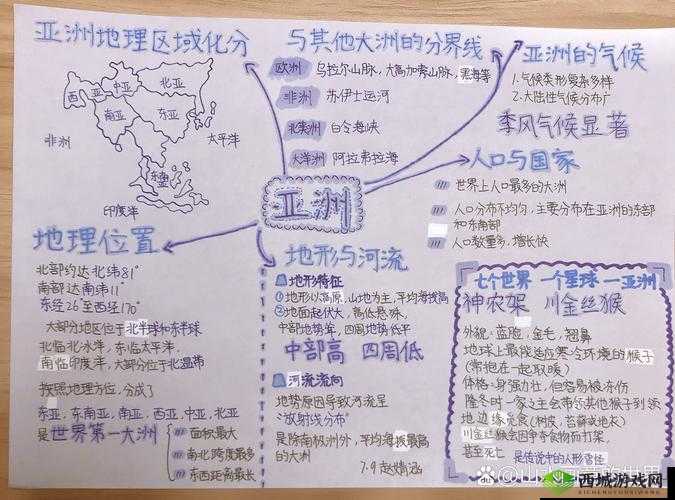 亚洲地理区域化分
北亚
中亚
西亚
南亚
东亚
东南亚
非洲
太平洋
印度洋
与其他大洲的分界线
欧洲 乌拉尔山脉，大高加索山脉，黑海等
非洲 苏伊士运河
北美洲 白令海峡
大洋洲 阿拉弗拉海
亚洲的气候
1.气候类形复杂多样
2.大陆性气候分布广
季风气候显著
人口与国家
世界上人口最多的大洲
人口分布不均匀，主要分布在亚洲的东部
和东南部
人口数量多，增长快
亚洲
地理位置
北部约达北纬81°
南部达南纬11°
东经26°至西经170°
大部分地区位于北半球和东半球
北临北冰洋，东临太平洋，
南临印度洋，大部分位于北温带
按照地理方位，分成了
东亚，东南亚，南亚，西亚，中亚，北亚
是世界第一大洲
面积最大
南北跨度最多
东西距离最长
地形与河流
地形特征
①地形以高原，山地为主，平均海拔高
②地面起伏大，高低悬殊，
中部地势高，四周地势低平
中部高 四周低
河流流向
地势原因导致河流呈
"放射线分布"
是除南极洲外，平均海拔最高
的大洲
7.9 赵婧涵
七个世界 一个星球 一亚洲
神农架 川金丝猴
外貌：蓝脸，金毛，翘鼻
地球上最能适应寒冷环境的猴子
（常抱在一起取暖）
体格：身强力壮，但容易被冻伤
隆冬时一家之主会带领其他猴子到领
地边缘觅食（树皮，苔藓或地衣）
川金丝猴会因争夺食物而打架，
甚至死亡
是传说中的人形害怪
西城游戏网